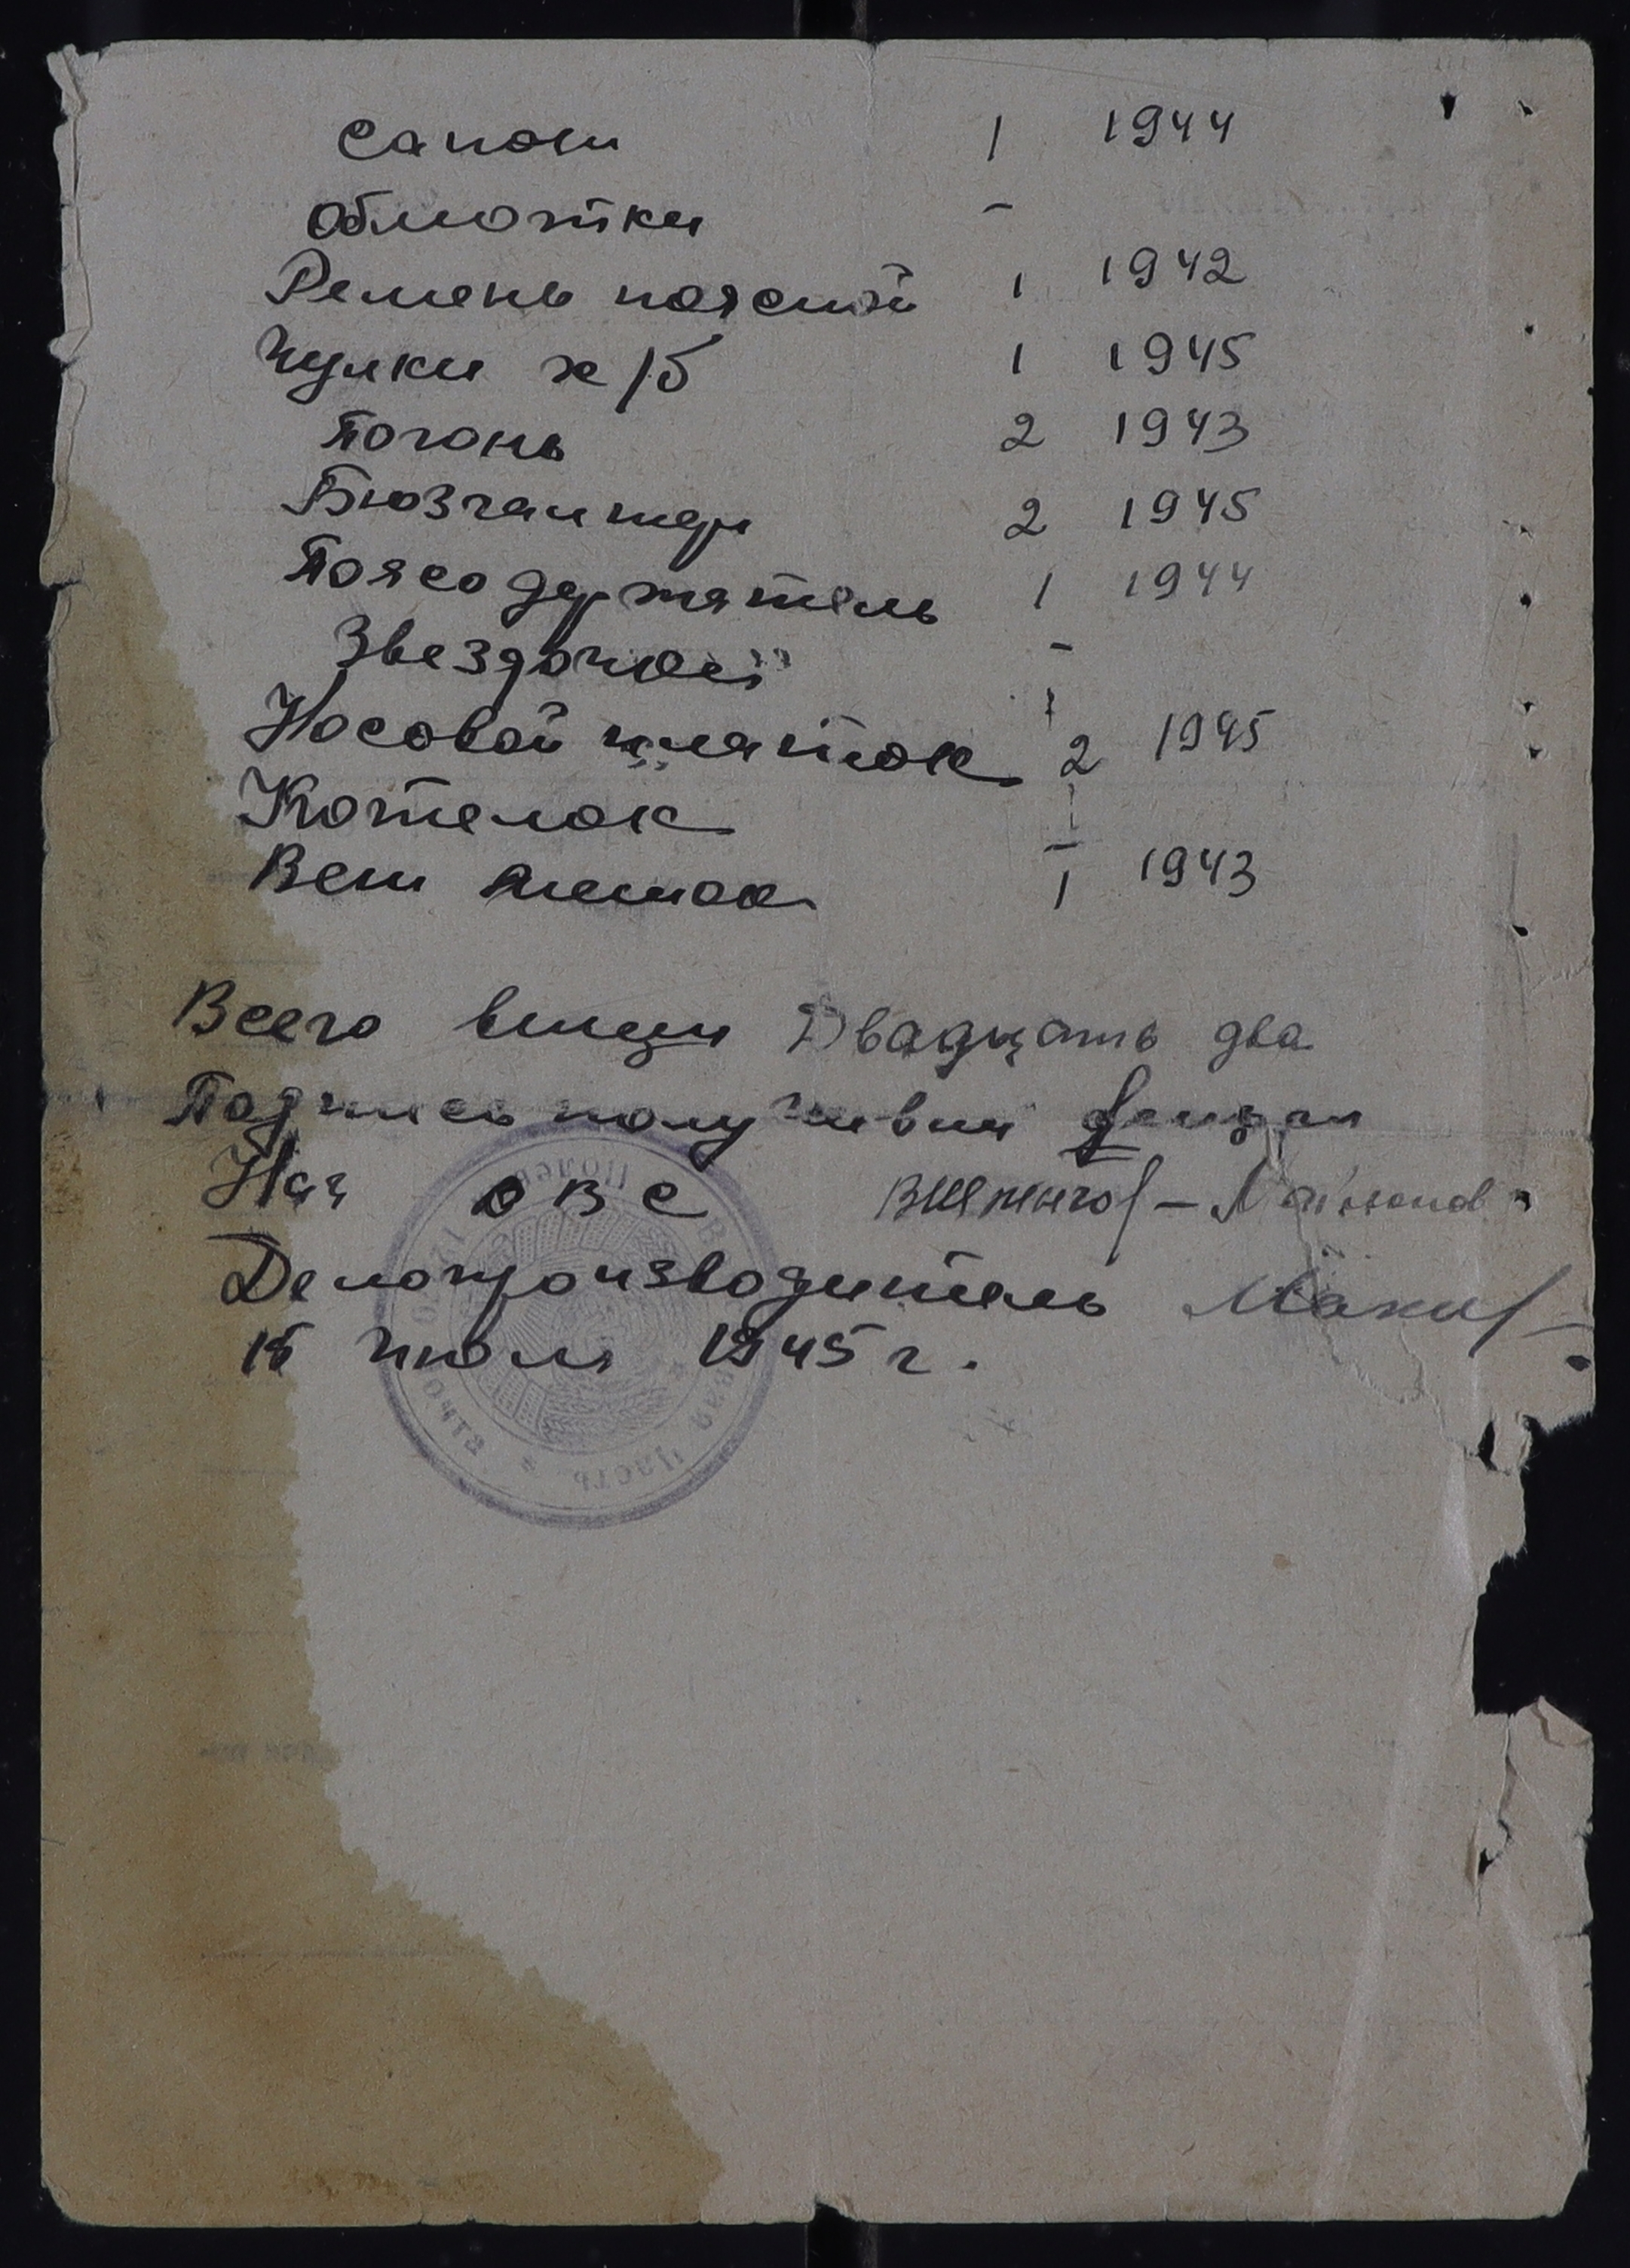 Сапоги 1 1944
Обмотки –
Ремень поясной 1 1942
Чулки х/б 1 1945
Погонь 2 1943
Бюзгалтер 2 1945
Поясодержатель 1 1944
Звездочкой –
Носовой платок 2 1945
Котелок –
Вещ мешок 1 1943
Всего вещи Двадцать два
Подпись получивши
Нач ОВС
Делопроизводитель
15 июля 1945 г.
Полевая Почта Часть